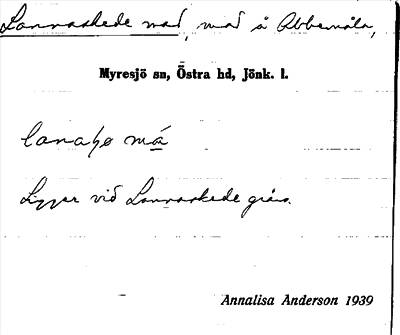 Lannaskede mad, mad å Abbemåla,
Myresjö sn, Östra hd, Jönk. l.
lanaʃɷ má
Ligger vid Lannaskede gräns.
Annalisa Anderson 1939